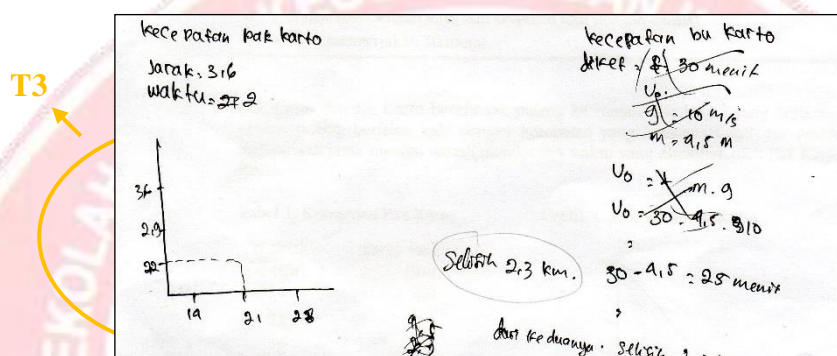 T3
kecepatan pak karto
Jarak = 3,6
waktu = 272
36
29
22
19
21
28
Selisih 2,3 km.
kecepatan bu karto
diket = 30 menit
Uo.
g = 10 m/s
m = 4,5 m
Uo = m.g
Uo = 30 - 4,5 . 10
=
30 - 4,5 = 25 menit
dari keduanya. selisih
EKOLAH